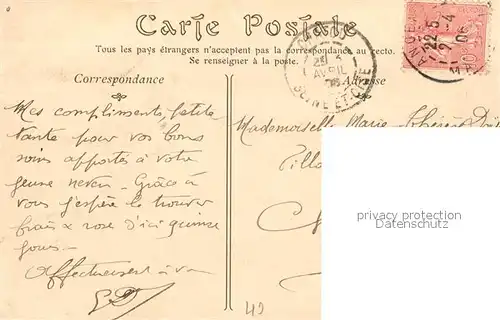 Carte Postale
Tous les pays étrangers n'acceptent pas la correspondance au recto.
Se renseigner à la poste.
Correspondance
Adresse
22-5
2-4
AVRIL
SEINE ET OISE
Mes compliments, petite
tante pour vos bons
soins apportés à votre
jeune neveu - Grâce à
vous j'espère le trouver
frais & rose d'ici quinze
jours -
Affectueusement à vous
Mademoiselle Marie-Thérèse
privacy protection
Datenschutz
42